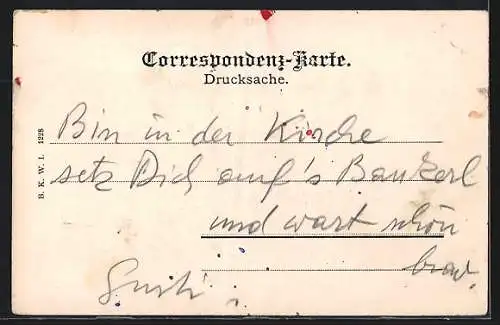 Correspondenz-Karte.
Drucksache.
B. K. W. I. 1228
Bin in der Kirche
setz Dich auf's Bankerl
und wart schön
brav.
Gusti